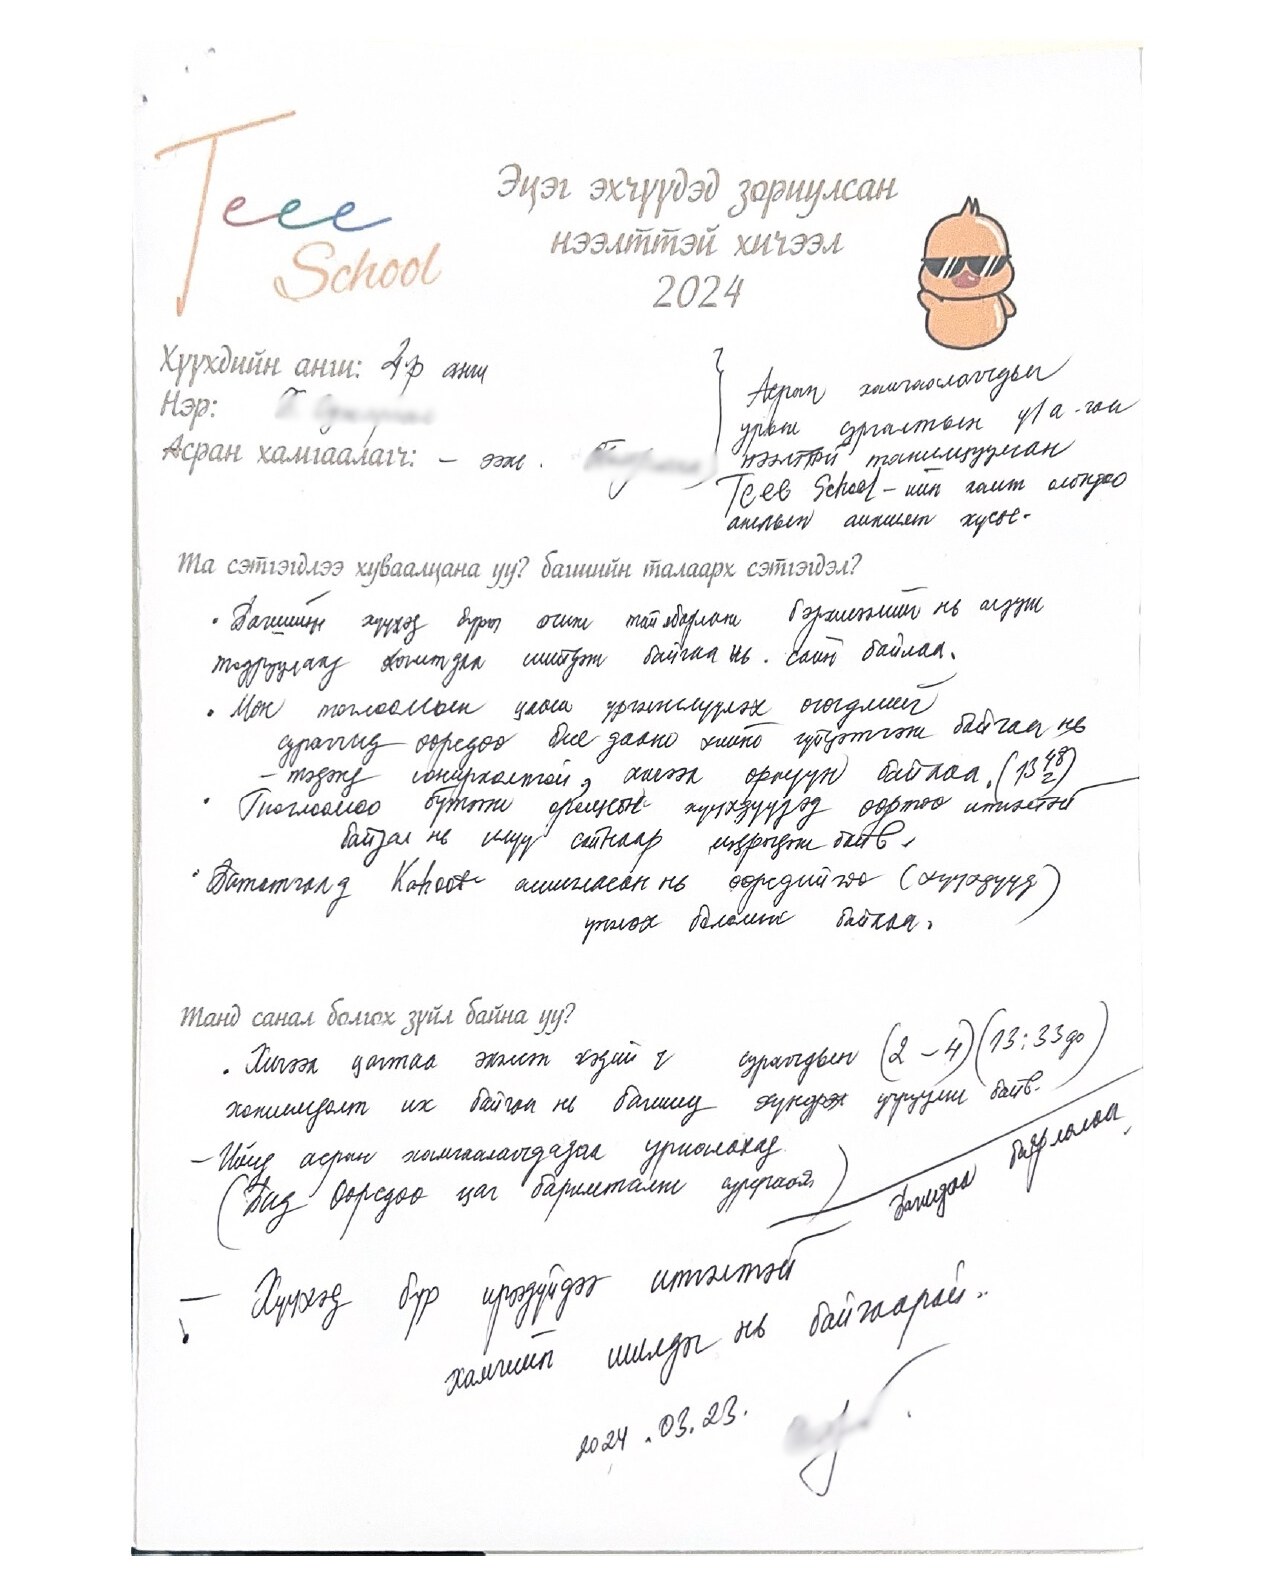 Teee
School
Эцэг эхчүүдэд зориулсан
нээлттэй хичээл
2024
Хүүхдийн анги: 4-р анги
Нэр:
Асран хамгаалагч: - ээж.
Асран хамгаалагчдын
урьж сургалтын үйл а-гаа
нээлттэй танилцуулсан
Teee School-ийн хамт олондоо
амжилт хүсье.
Та сэтгэгдлээ хуваалцана уу? багшийн талаарх сэтгэгдэл?
• Багшийн хүүхэд бүрт очиж тайлбарлаж бэрхшээлийг нь асууж
тодруулаад хамтдаа шийдэж байгаа нь сайн байлаа.
• Мөн тоглоомын цааш үргэлжлүүлэх өгөгдлийг
сурагчид өөрсдөө бие даано хийно гүйцэтгэж байгаа нь
- тэдэнд сонирхолтой, хичээл өрнүүн байлаа. (13 48
• Тоглоомоо бүтээж оролцсон хүүхдүүдэд өөртөө итгэлтэй
байдал нь илүү сайнаар мэдрэгдэж байв.
• Бататгалд Kahoot ашигласан нь өөрсдийгөө (хүүхдүүд)
үнэлэх боломж байлаа.
Танд санал болгох зүйл байна уу?
• Хичээл цагтаа эхлэж хэдий ч сурагчдын (2-4) (13:33 до)
хоцролт их байгаа нь багшид хүндрэл учруулж байв.
- Иймд асран хамгаалагчдадаа уриалахад
(Бид өөрсдөө цаг баримталж сургая)
Багшдаа баярлалаа
- Хүүхэд бүр ирээдүйдээ итгэлтэй
хамгийн шилдэг нь байгаарай..
2024.03.23.